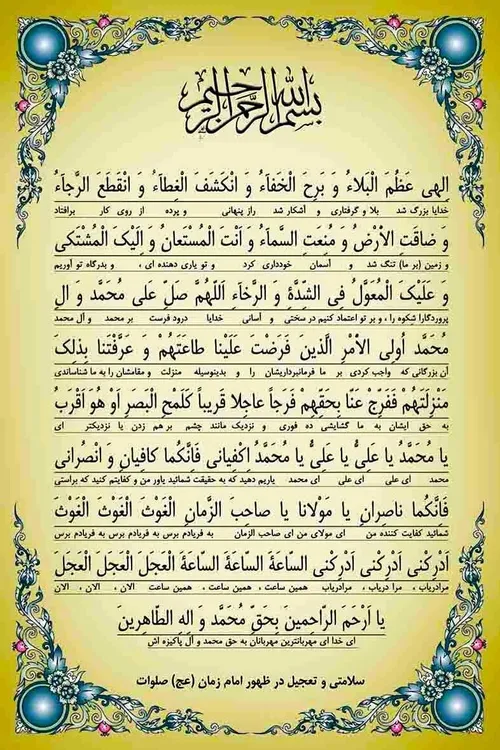 بسم الله الرحمن الرحیم
اِلهی عَظُمَ الْبَلاءُ وَ بَرِحَ الْخَفاءُ وَ انْکَشَفَ الْغِطاءُ وَ انْقَطَعَ الرَّجاءُ
خدایا بزرگ شد بلا و گرفتاری و آشکار شد راز پنهانی و پرده از روی کار برافتاد
وَ ضاقَتِ الْاَرْضُ وَ مُنِعَتِ السَّماءُ وَ اَنْتَ الْمُسْتَعانُ وَ اِلَیْکَ الْمُشْتَکی
و زمین (بر ما) تنگ شد و آسمان خودداری کرد و تو یاری دهنده ای ، و بدرگاه تو آوریم
وَ عَلَیْکَ الْمُعَوَّلُ فِی الشِّدَّةِ وَ الرَّخاءِ اَللّهُمَّ صَلِّ عَلی مُحَمَّد وَ الِ
پروردگارا شکوه را ، و بر تو اعتماد کنیم در سختی و آسانی خدایا درود فرست بر محمد و آل محمد
مُحَمَّد اُولِی الْاَمْرِ الَّذینَ فَرَضْتَ عَلَیْنا طاعَتَهُمْ وَ عَرَّفْتَنا بِذلِکَ
آن بزرگانی که واجب کردی بر ما فرمانبرداریشان را و بدینوسیله منزلت و مقامشان را به ما شناساندی
مَنْزِلَتَهُمْ فَفَرِّجْ عَنّا بِحَقِّهِمْ فَرَجاً عاجِلا قَریباً کَلَمْحِ الْبَصَرِ اَوْ هُوَ اَقْرَبُ
به حق ایشان به ما گشایشی ده فوری و نزدیک مانند چشم بر هم زدن یا نزدیکتر ای
یا مُحَمَّدُ یا عَلِیُّ یا عَلِیُّ یا مُحَمَّدُ اِکْفِیانی فَاِنَّکُما کافِیانِ وَ انْصُرانی
محمد ای علی ای علی ای محمد یاریم دهید که به حقیقت شمائید یاور من و کفایتم کنید که براستی
فَاِنَّکُما ناصِرانِ یا مَوْلانا یا صاحِبَ الزَّمانِ الْغَوْثَ الْغَوْثَ الْغَوْثَ
شمائید کفایت کننده من ای مولای من ای صاحب الزمان به فریادم برس به فریادم برس به فریادم برس
اَدْرِکْنی اَدْرِکْنی اَدْرِکْنی السّاعَةَ السّاعَةَ السّاعَةَ الْعَجَلَ الْعَجَلَ الْعَجَلَ
مرادریاب ، مرا دریاب ، مرادریاب همین ساعت ، همین ساعت ، همین ساعت الان ، الان ، الان
یا اَرْحَمَ الرّاحِمینَ بِحَقِّ مُحَمَّد وَ الِهِ الطّاهِرینَ
ای خدا ای مهربانترین مهربانان به حق محمد و آل پاکیزه اش
سلامتی و تعجیل در ظهور امام زمان (عج) صلوات